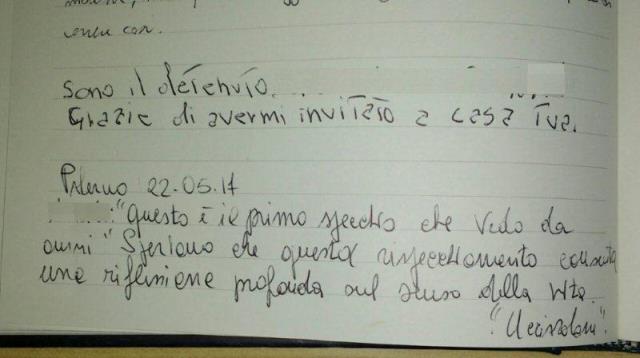 Sono il detenuto
Grazie di avermi invitato a casa tua.
Palermo 22.05.17
"Questo è il primo specchio che vedo da
anni" Speriamo che questo rispecchiamento consenta
una riflessione profonda sul senso della vita.